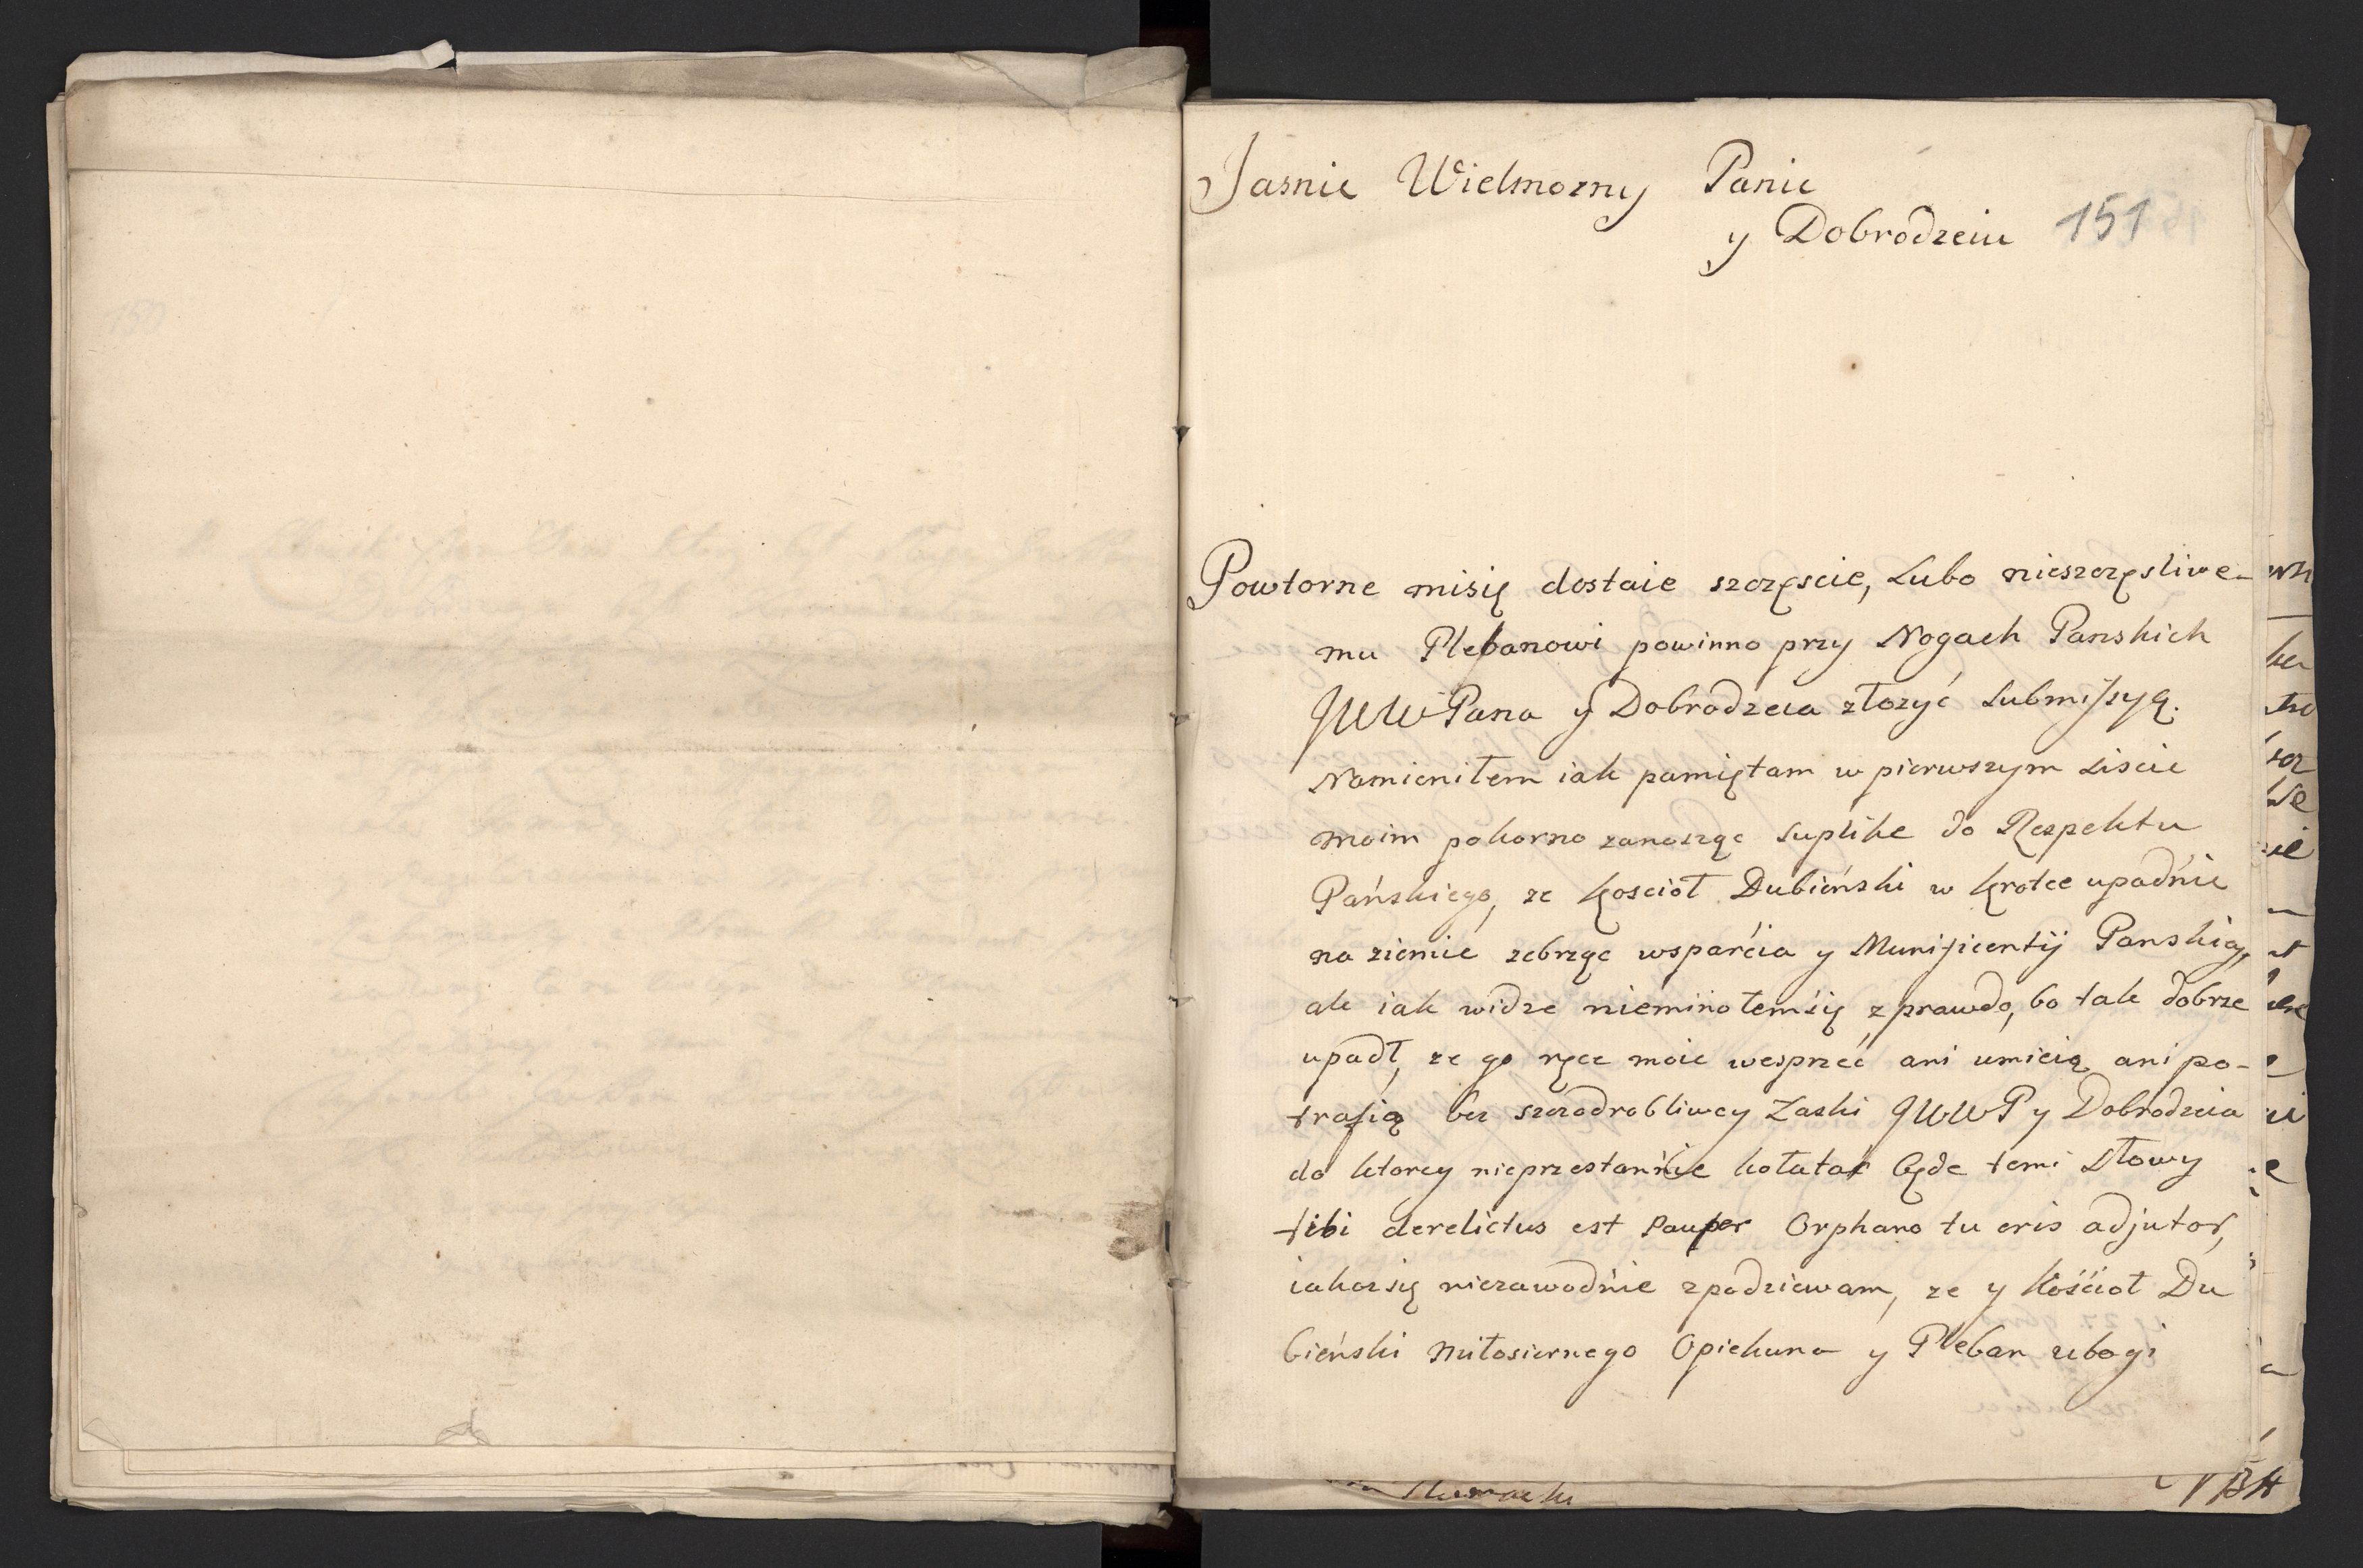 Jasnie Wielmozny Panie
y Dobrodzeiu 151
Powtorne misię dostaie szczęscie, Lubo nieszczęsliwe-
mu Plebanowi powinno przy Nogach Panskich
JWW Pana y Dobrodzeia złozyć Submissyą.
Namieniłem iak pamiętam w pierwszym Liscie
moim pokorno zanosząc suplike do Respektu
Pańskiego, ze koscioł Dubieński w krotce upadńie
na ziemie zebrząc wsparćia y Munificentij Panskiey,
ale iak widze nieminołemsię z prawdo, bo tak dobrze
upadł, ze go ręce moie wesprzeć ani umieią ani po-
trafią bez szczodrobliwey Łaski JWWP y Dobrodzeia
do ktorey nieprzestannie kołatać będe temi Słowy
tibi derelictus est Pauper Orphano tu eris adjutor,
iakozsię niezawodńie zpodziewam, ze y Kośćioł Du
bieński miłosiernego Opiekuna y Pleban ubogi